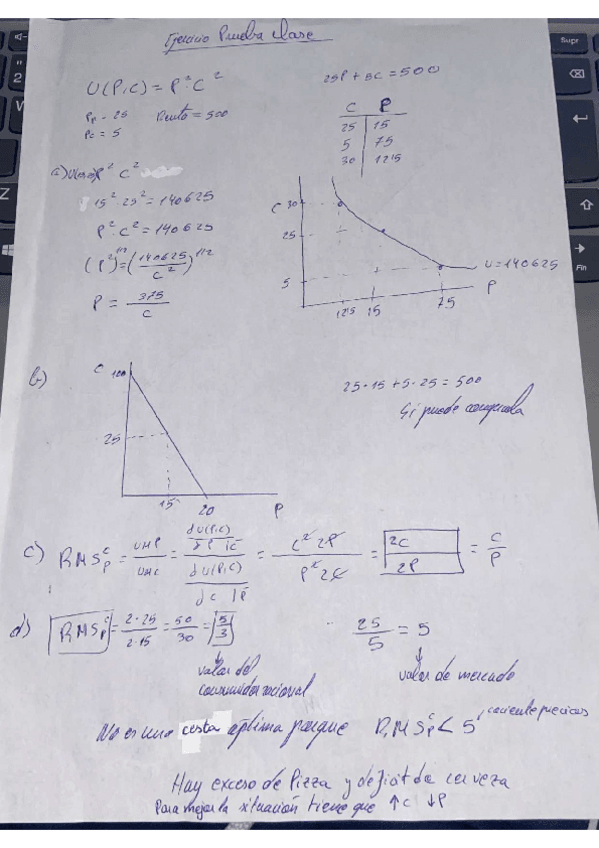 Ejercicio Prueba clase
U(P,C) = P²·C²
25P + 5C = 500
Pp = 25 Renta = 500
Pc = 5
C P
25 15
5 75
30 12'5
a) P² C²
15²·25² = 140625
P²·C² = 140625
(P²)^1/2 = (140625/C²)^1/2
P = 375/C
C 30
25
5
U=140625
12'5 15 75
P
b)
C 100
25
15 20 P
25·15 + 5·25 = 500
Si puede comprarla
c) RMS^C_P = UMP/UMC = (dU(P,C)/dP |C̄)/(dU(P,C)/dC |P̄) = C² 2P/P² 2C = 2C/2P = C/P
d) RMS^C_P = 2·25/2·15 = 50/30 = 5/3
25/5 = 5
valor del
consumidor racional
valor de mercado
No es una cesta optima porque RMS^C_P < 5 cociente precios
Hay exceso de Pizza y deficit de cerveza
Para mejorar la situación tiene que ↑C ↓P